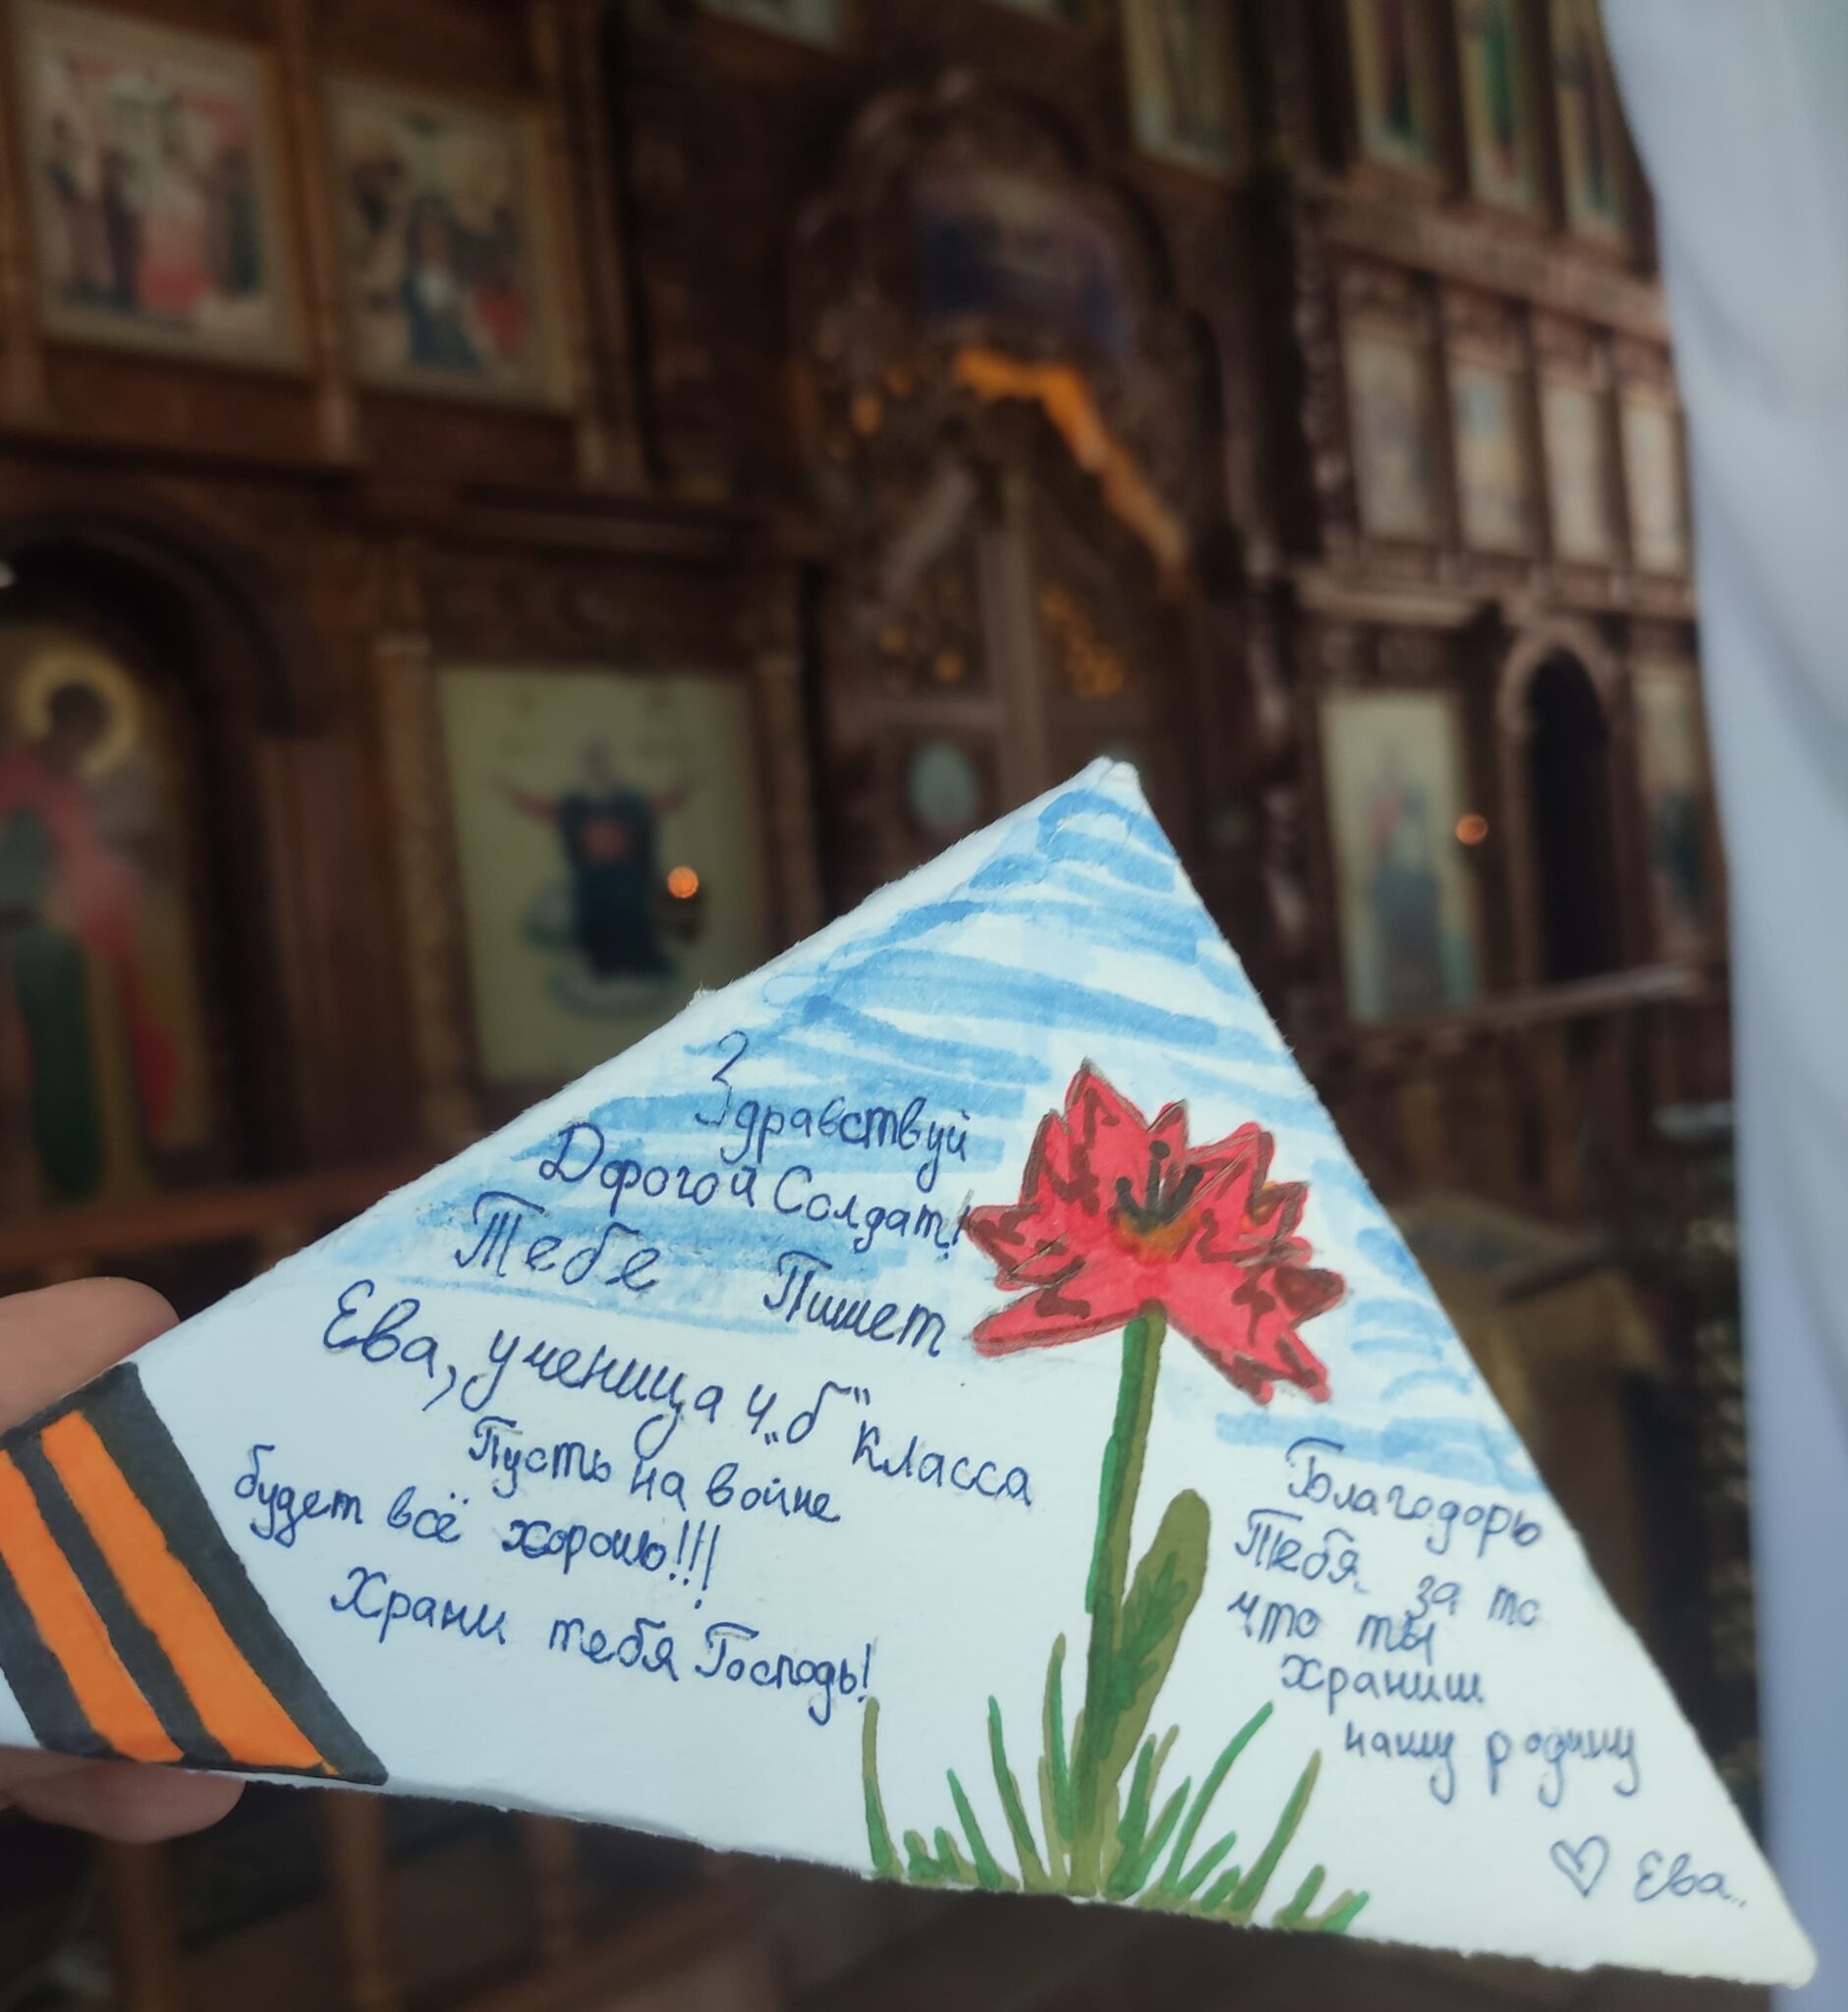 Здравствуй
Дорогой Солдат!
Тебе Пишет
Ева, ученица 4 „б" класса
Пусть на войне
будет всё хорошо!!!
Храни тебя Господь!
Благодорь
Тебя за то
что ты
храниш
нашу родину
Ева..